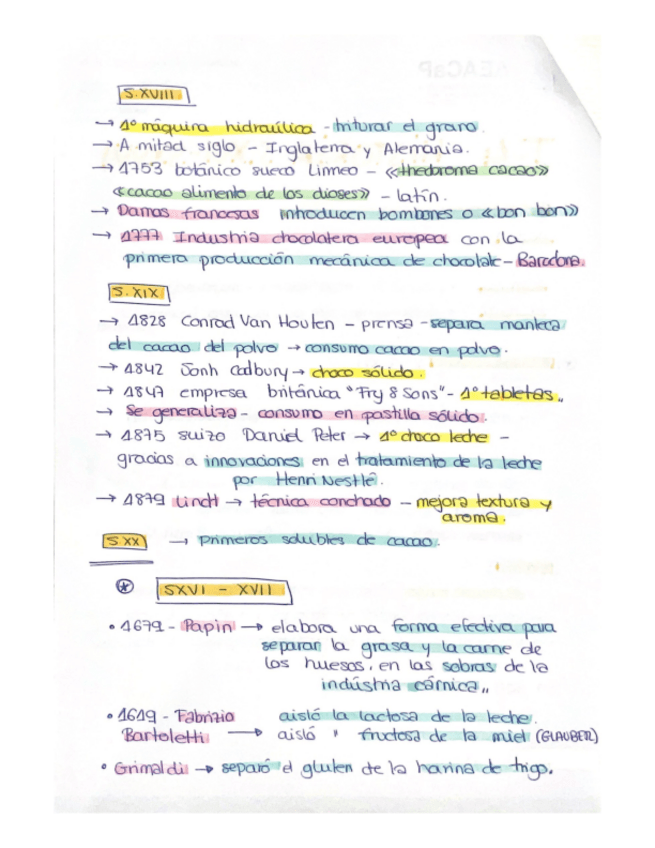 S.XVIII
→ 1º máquina hidraúlica - triturar el grano.
→ A mitad siglo - Inglaterra y Alemania.
→ 1753 botánico sueco Linneo - «thedoroma cacao»
«cacao alimento de los dioses» - latín.
→ Damas francesas introducen bombones o «bon bon»
→ 1777 Industria chocolatera europea con la
primera producción mecánica de chocolate - Barcelona.
S.XIX
→ 1828 Conrad Van Houten - prensa - separa manteca
del cacao del polvo → consumo cacao en polvo.
→ 1842 Jonh Cadbury → choco sólido.
→ 1847 empresa británica "Fry & Sons" - 1º tabletas.,
→ Se generaliza - consumo en pastilla sólido.
→ 1875 suizo Daniel Peter → 1º choco leche -
gracias a innovaciones en el tratamiento de la leche
por Henri Nestlé.
→ 1879 Lindt → técnica conchado - mejora textura y
aroma.
S XX → primeros solubles de cacao.
* SXVI - XVII
• 1679 - Papin → elabora una forma efectiva para
separar la grasa y la carne de
los huesos, en las sobras de la
indústria cárnica,,
• 1619 - Fabrizio aisló la lactosa de la leche.
Bartoletti → aisló " fructosa de la miel (GLAUBER)
• Grimaldi → separó el gluten de la harina de trigo.